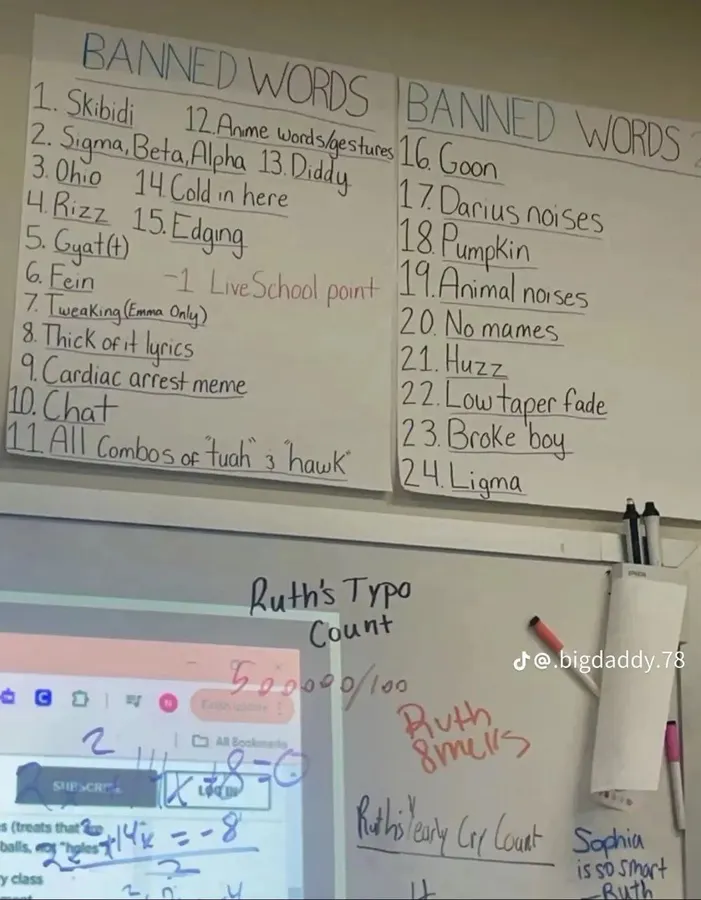 BANNED WORDS
1. Skibidi
2. Sigma, Beta, Alpha
3. Ohio
4. Rizz
5. Gyat(t)
6. Fein
7. Tweaking (Emma Only)
8. Thick of it lyrics
9. Cardiac arrest meme
10. Chat
11. All Combos of "tuah" & "hawk"
12. Anime words/gestures
13. Diddy
14. Cold in here
15. Edging
-1 LiveSchool point
BANNED WORDS 2
16. Goon
17. Darius noises
18. Pumpkin
19. Animal noises
20. No mames
21. Huzz
22. Low taper fade
23. Broke boy
24. Ligma
Ruth's Typo
Count
500000/100
Ruth
Smells
Ruth's Yearly Cry Count
Sophia
is so smart
-Ruth
@.bigdaddy.78
All Bookmarks
SUBSCRIBE
LOG IN
s (treats that
balls, not "holes"
y class
+14x = -8
2